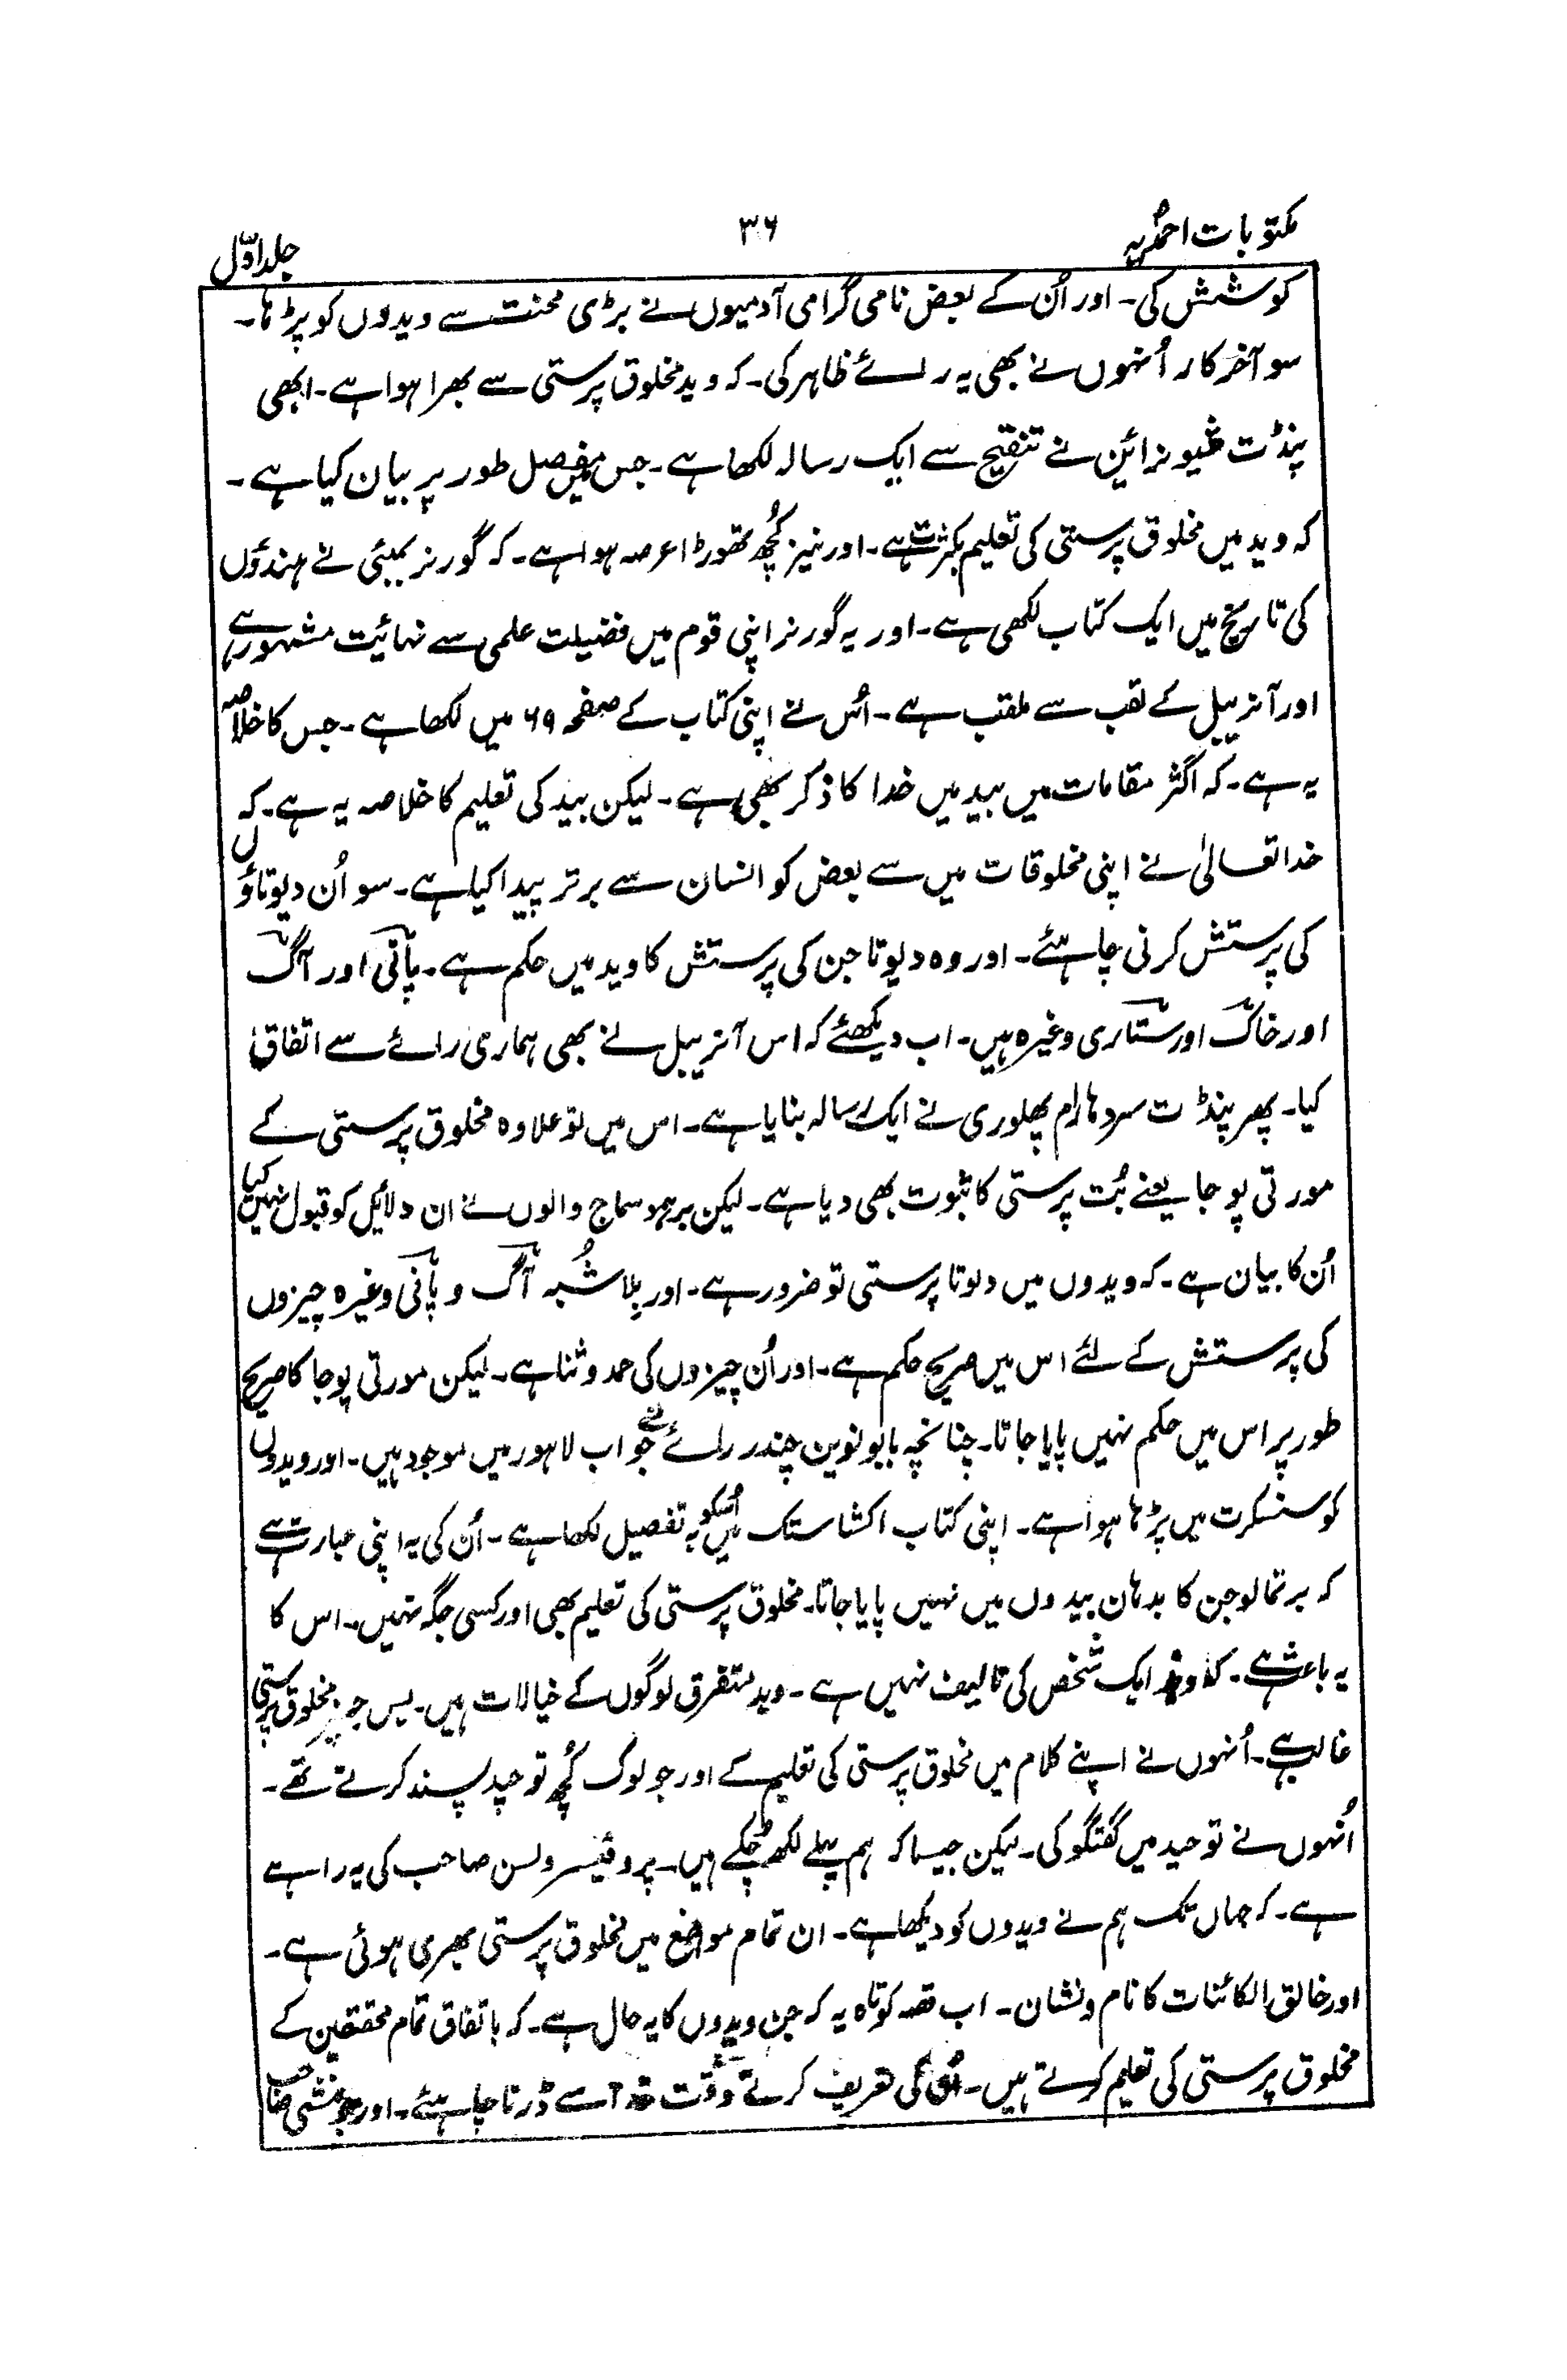 مکتوبات احمدیہ
۳۶
جلد اوّل
کوشش کی۔ اور اُن کے بعض نامی گرامی آدمیوں نے بڑی محنت سے ویدوں کو پڑھا۔
سو آخر کار اُنہوں نے بھی یہ رائے ظاہر کی۔ کہ وید مخلوق پرستی سے بھرا ہوا ہے۔ ابھی
پنڈت شیونرائن نے تنقیح سے ایک رسالہ لکھا ہے۔ جس میں مفصل طور پر بیان کیا ہے۔
کہ وید میں مخلوق پرستی کی تعلیم بکثرت ہے۔ اور نیز کُچھ تھوڑا عرصہ ہوا ہے۔ کہ گورنر بمبئی نے ہندؤں
کی تاریخ میں ایک کتاب لکھی ہے۔ اور یہ گورنر اپنی قوم میں فضیلت علمی سے نہائیت مشہور ہے
اور آنریبل کے لقب سے ملقب ہے۔ اُس نے اپنی کتاب کے صفحہ ۶۹ میں لکھا ہے۔ جس کا خلاصہ
یہ ہے۔ کہ اکثر مقامات میں بید میں خدا کا ذکر بھی ہے۔ لیکن بید کی تعلیم کا خلاصہ یہ ہے۔ کہ
خدا تعالیٰ نے اپنی مخلوقات میں سے بعض کو انسان سے برتر پیدا کیا ہے۔ سو اُن دیوتاؤں
کی پرستش کرنی چاہئے۔ اور وہ دیوتا جن کی پرستش کا وید میں حکم ہے۔ پانی اور آگ
اور خاک اور ستاری وغیرہ ہیں۔ اب دیکھئے کہ اس آنریبل نے بھی ہماری رائے سے اتفاق
کیا۔ پھر پنڈت سردہا رام پھلوری نے ایک رسالہ بنایا ہے۔ اس میں تو علاوہ مخلوق پرستی کے
مورتی پوجا یعنے بُت پرستی کا ثبوت بھی دیا ہے۔ لیکن برہمو سماج والوں نے ان دلائل کو قبول نہیں کیا
اُن کا بیان ہے۔ کہ ویدوں میں دیوتا پرستی تو ضرور ہے۔ اور بِلا شُبہ آگ و پانی وغیرہ چیزوں
کی پرستش کے لئے اس میں صریح حکم ہے۔ اور اُن چیزوں کی حمد و ثنا ہے۔ لیکن مورتی پوجا کا صریح
طور پر اس میں حکم نہیں پایا جاتا۔ چنانچہ بابو نوین چندر رائے نے جو اب لاہور میں موجود ہیں۔ اور ویدوں
کو سنسکرت میں پڑھا ہوا ہے۔ اپنی کتاب اکشاستک میں اُسکو بہ تفصیل لکھا ہے۔ اُن کی یہ اپنی عبارت ہے
کہ برتمالوجن کا بدہان بیدوں میں نہیں پایا جاتا۔ مخلوق پرستی کی تعلیم بھی اور کسی جگہ نہیں۔ اس کا
یہ باعث ہے۔ کہ وید ایک شخص کی تالیف نہیں ہے۔ وید متفرق لوگوں کے خیالات ہیں۔ پس جن پر مخلوق پرستی
غالب ہے۔ اُنہوں نے اپنے کلام میں مخلوق پرستی کی تعلیم کے اور جو لوگ کُچھ توحید پسند کرتے تھے۔
اُنہوں نے توحید میں گفتگو کی۔ لیکن جیسا کہ ہم پہلے لکھ چُکے ہیں۔ پروفیسر ولسن صاحب کی یہ رائے
ہے۔ کہ جہاں تک ہم نے ویدوں کو دیکھا ہے۔ ان تمام مواضع میں مخلوق پرستی بھری ہوئی ہے۔
اور خالق الکائنات کا نام و نشان۔ اب قصہ کوتاہ یہ کہ جن ویدوں کا یہ حال ہے۔ کہ باتفاق تمام محققین کے
مخلوق پرستی کی تعلیم کرتے ہیں۔ اُن کی تعریف کرتے وقت خدا سے ڈرنا چاہئے۔ اور جو منشی صاحب